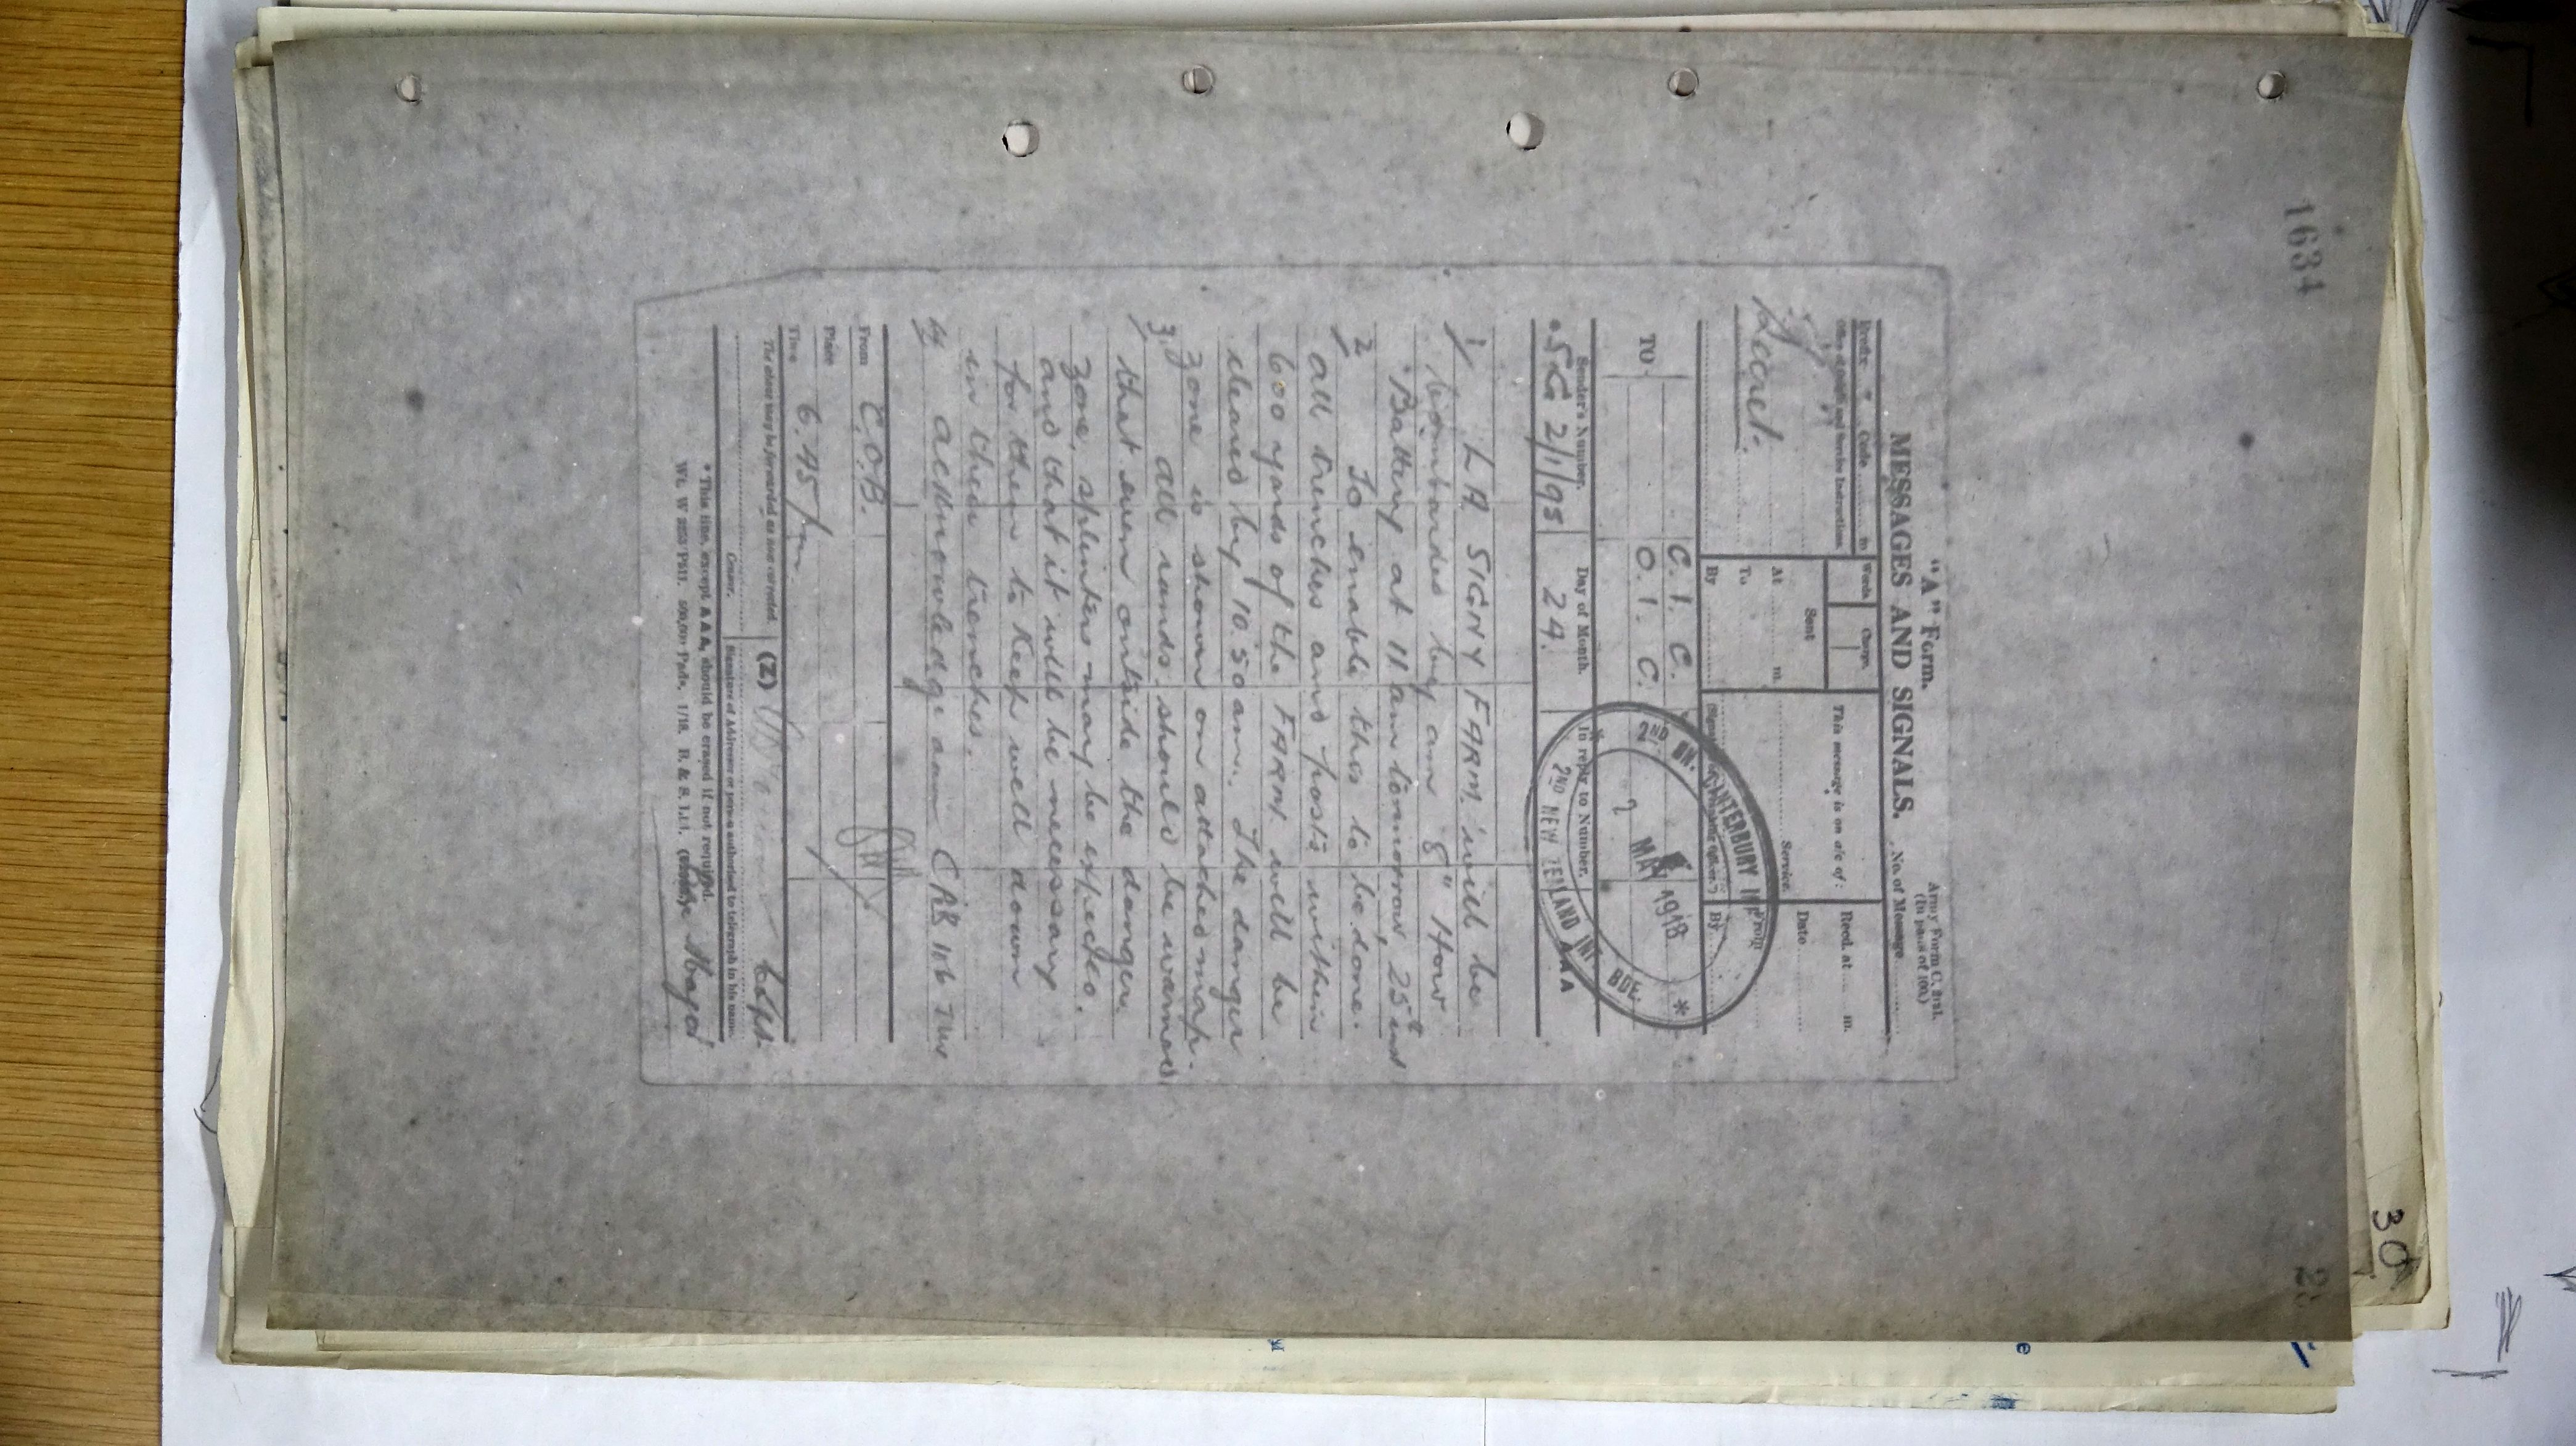 1634
"A" Form.
Army Form C. 2121.
(In pads of 100.)
MESSAGES AND SIGNALS.
No. of Message
Prefix Code m
Words
Charge.
This message is on a/c of:
Recd. at m.
Office of Origin and Service Instructions.
Sent
Service.
Date
Secret.
At m.
From
To
By
By
2ND BN. CANTERBURY INF
MAY 1918
2ND NEW ZEALAND INF BDE.
TO
C. I. C.
O. I. C.
Sender's Number.
Day of Month.
In reply to Number.
AAA
SG 2/1/95
24.
1/ LA SIGNY FARM will be
bombarded by an 8" How
Battery at 11 am tomorrow, 25th inst
2/ To enable this to be done.
all trenches and posts within
600 yards of the FARM will be
cleared by 10.50 am. The danger
zone is shown on attached map.
3/ All ranks should be warned
that even outside the danger
zone, splinters may be expected.
and that it will be necessary
for them to keep well down
in their trenches.
4/ Acknowledge aaa CAB 116 TW
From
C.O.B.
Place
Time
6.45 pm
The above may be forwarded as now corrected.
(Z)
Capt
Censor.
Signature of Addressor or person authorised to telegraph in his name.
* This line, except A A A, should be erased if not required.
Major
30